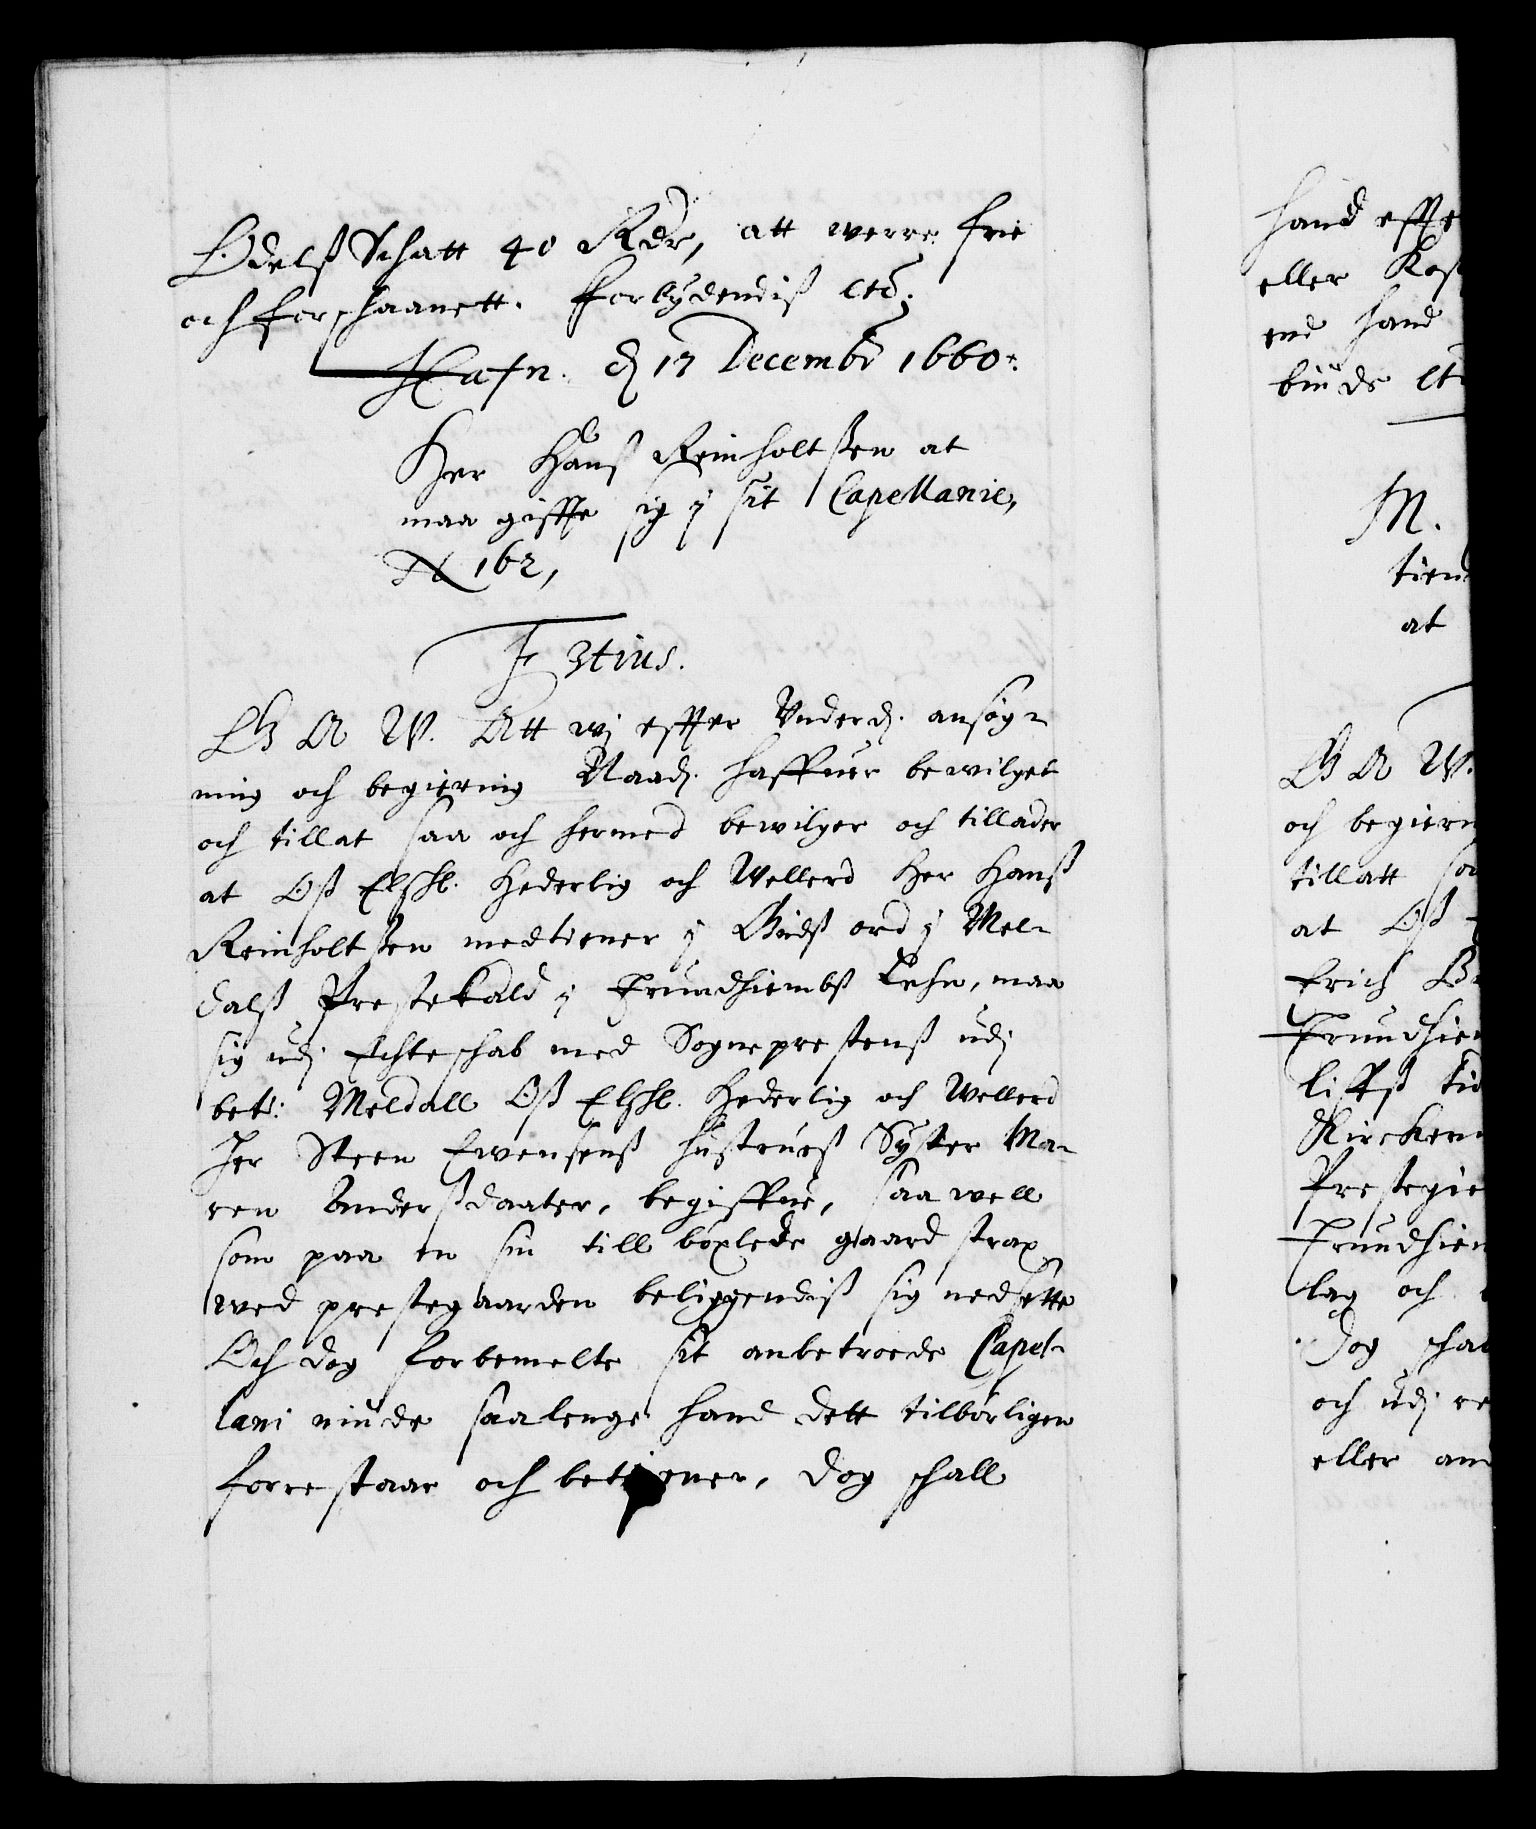 Odelß Schatt 40 Rdr, att werre frie
och forschaanett. Forbydendiß etc.
Hafn. d 17 Decembr 1660.
Her Hanß Reinholtßen at
maa giffte sig j sit Capellanie,
N 162,
F 3tius.
G A W. Att wj effter Underd. ansøg-
ning och begiering Naad. haffuer bewilget
och tillat saa och hermed bewilger och tillader
at Oß Elskl. Hederlig och Wellerd Her Hanß
Reinholtßen medtiener j Gudß ord j Mel-
dalß Prestekald j Trundhiembß Lehn, maa
sig udj Echteschab med Sogneprestenß udj
bete: Meldall Oß Elskl. Hederlig och Wellerd
Her Steen Ewensenß hustrueß Syster Ma-
ren Anderßdaater, begiffue, saa well
som paa en sin till böxlede gaard strax
wed prestegaarden beliggendiß sig nedsette
Och dog forbemelte sit anbetroede Capel-
lani niude saalenge hand dett tilbörligen
forrestaar och betiener, dog schall
hand effte
eller Kost
end hand
binde etc
M.
tien
at
G A W.
och begiern
tillatt saa
at Oß
Erich
Trundhiem
liffß tid
Kircken
Prestegie
Trundhiem
lag och
Dog schal
och udj re
eller and